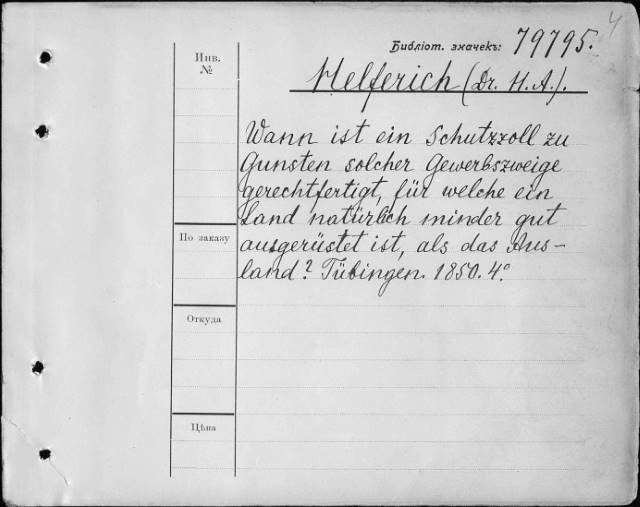 4
Библіот. значекъ: 79795.
Инв.
№
Helferich (Dr. H. A.).
Wann ist ein Schutzzoll zu
Gunsten solcher Gewerbszweige
gerechtfertigt, für welche ein
Land natürlich minder gut
ausgerüstet ist, als das Aus-
land? Tübingen. 1850. 4°
По заказу
Откуда
Цѣна